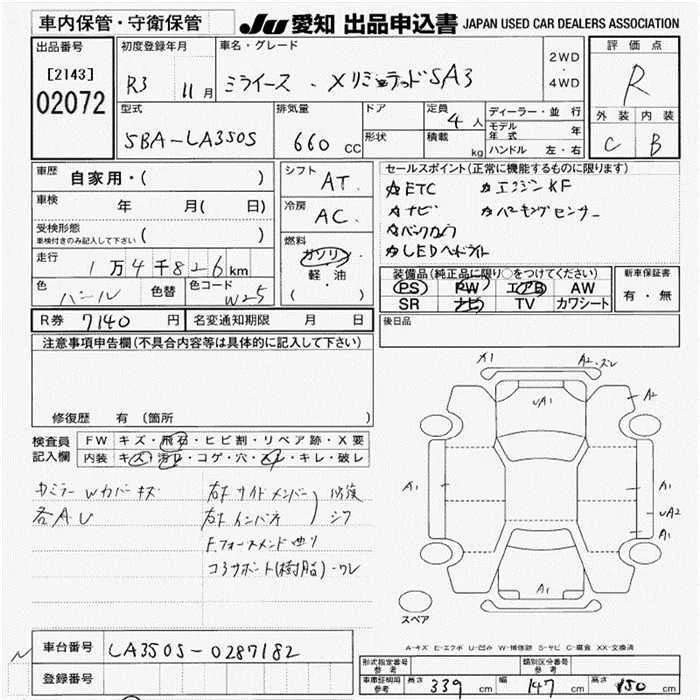 車内保管・守衛保管
JU 愛知 出品申込書 JAPAN USED CAR DEALERS ASSOCIATION
出品番号
[2143]
02072
初度登録年月
R3 11月
車名・グレード
ミライース ・ XリミテッドSA3
2WD
・
4WD
評価点
R
外装 内装
C B
型式
5BA-LA350S
排気量
660 cc
ドア
形状
定員
4 人
積載
kg
ディーラー・並行
モデル年式 年
ハンドル 左・右
車歴 自家用・( )
車検 年 月( 日)
受検形態
車検付きのみ記入して下さい ( )
走行 1万4千826km
色 パール 色替 色コード W25
シフト AT.
冷房 AC.
燃料
ガソリン
軽油
( ・ )
セールスポイント(正常に機能するものに限ります)
☆ETC ☆エンジンKF
☆ナビ ☆パーキングセンサー
☆バックカメラ
☆LEDヘッドライト
装備品(純正品に限り○をつけてください)
PS PW エアB AW
SR ナビ TV カワシート
新車保証書
有・無
R券 7140 円 名変通知期限 月 日
後日品
注意事項申告欄(不具合内容等は具体的に記入して下さい)
修復歴 有(箇所 )
検査員記入欄
FW キズ・飛石・ヒビ割・リペア跡・X要
内装 キズ・汚レ・コゲ・穴・スレ・キレ・破レ
カミラーWカバーキズ
各A.U
右F サイドメンバー 修復
右F インパネ シワ
F.フォースメンド曲り
コアサポート(樹脂)-ワレ
X1
A2.ズレ
UA1
A2
A1
A1
UA2
A1
A1
スペア
A-キズ E-エクボ U-凹み W-補修跡 S-サビ C-腐食 XX-交換済
車台番号 LA350S-0287182
登録番号
形式指定番号 参考
類別区分番号 参考
車庫証明用 参考 長さ 339 cm 幅 147 cm 高さ 150 cm